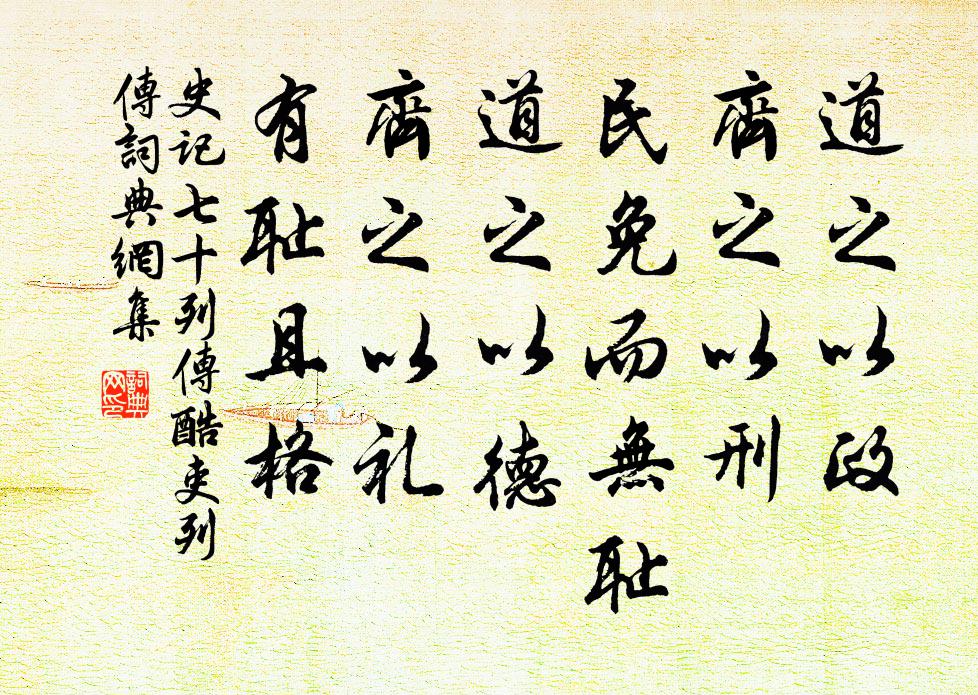 道之以政
齊之以刑
民免而無耻
道之以德
齊之以礼
有耻且格
史记七十列傳酷吏列
傳詞典網集
詞典
网印